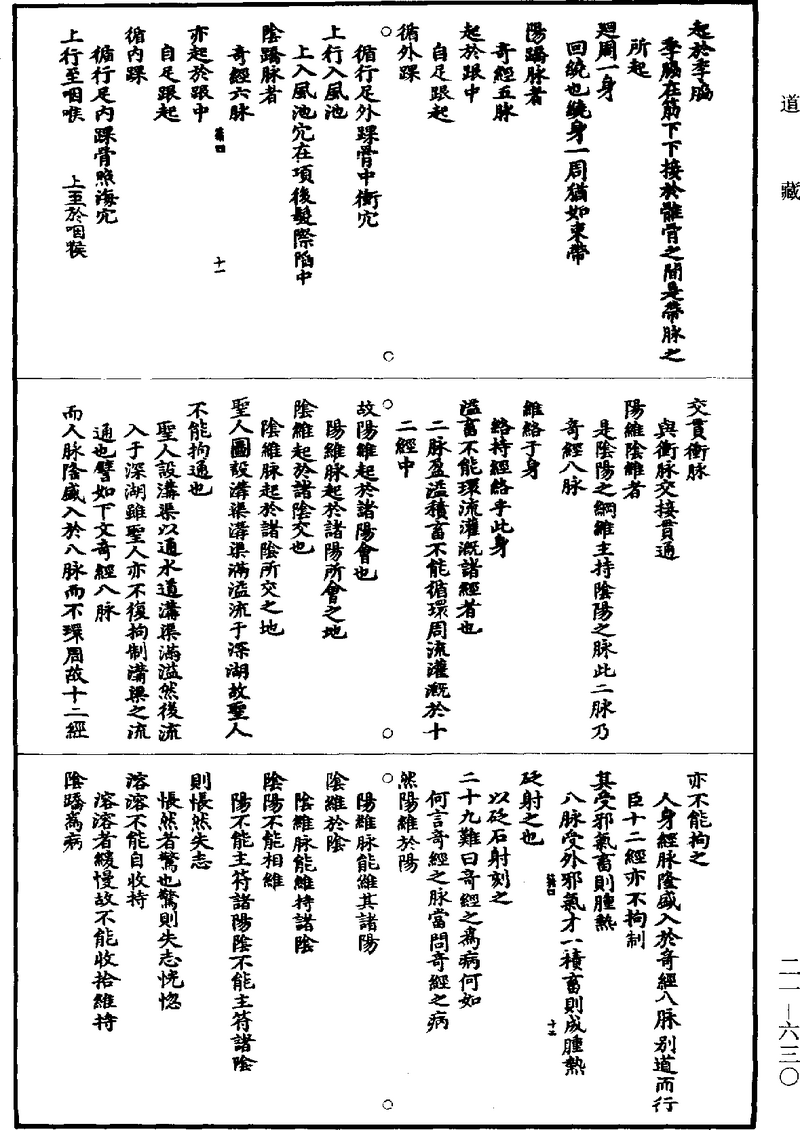 道藏
起於季脇
季脇在筋下下接於髖骨之間是帶脉之
所起
廻周一身
回繞也繞身一周猶如束帶
陽蹻脉者
奇經五脉
起於跟中
自足跟起
循外踝
循行足外踝骨中衝穴
上行入風池
上入風池穴在項後髮際陷中
陰蹻脉者
奇經六脉
第四 十一
亦起於跟中
自足跟起
循內踝
循行足內踝骨照海穴
上行至咽喉
上至於咽喉
交貫衝脉
與衝脉交接貫通
陽維陰維者
是陰陽之綱維主持陰陽之脉此二脉乃
奇經八脉
維絡于身
絡持經絡乎此身
溢畜不能環流灌溉諸經者也
二脉盈溢積畜不能循環周流灌溉於十
二經中
故陽維起於諸陽會也
陽維脉起於諸陽所會之地
陰維起於諸陰交也
陰維脉起於諸陰所交之地
聖人圖設溝渠溝渠滿溢流于深湖故聖人
不能拘通也
聖人設溝渠以通水道溝渠滿溢然後流
入于深湖雖聖人亦不復拘制溝渠之流
通也譬如下文奇經八脉
而人脉隆盛入於八脉而不環周故十二經
亦不能拘之
人身經脉隆盛入於奇經八脉別道而行
臣十二經亦不拘制
其受邪氣畜則腫熱
八脉受外邪氣才一積畜則成腫熱
第四 十二
砭射之也
以砭石射刻之
二十九難曰奇經之為病何如
何言奇經之脉當問奇經之病
然陽維於陽
陽維脉能維其諸陽
陰維於陰
陰維脉能維持諸陰
陰陽不能相維
陽不能主符諸陽陰不能主符諸陰
則悵然失志
悵然者驚也驚則失志恍惚
溶溶不能自收持
溶溶者緩慢故不能收拾維持
陰蹻為病
二一—六三〇